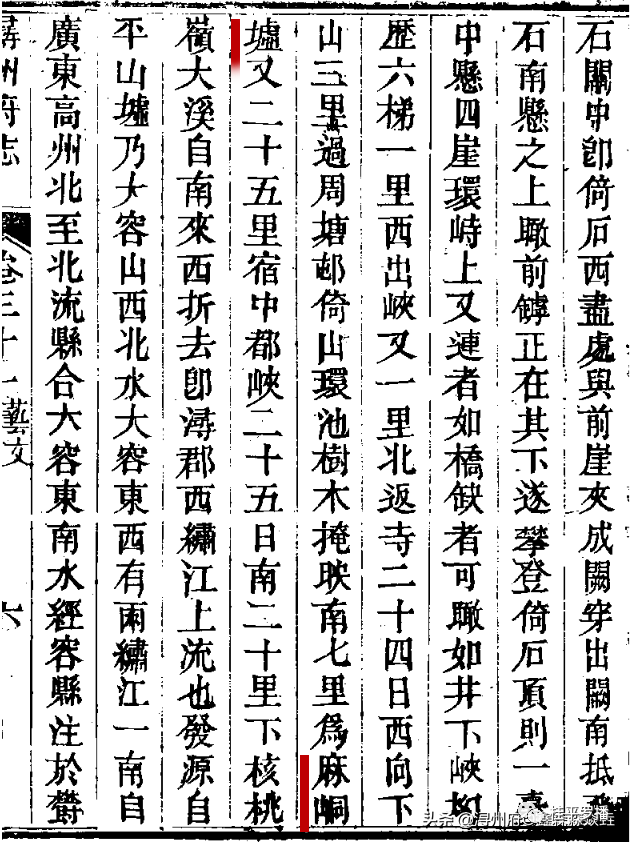 石關中卽倚石西盡處與前崖夾成關穿出關南抵
石南懸之上瞰前罅正在其下遂攀登倚石頂則一臺
中懸四崖環峙上又連者如橋缺者可瞰如井下峽如
歷六梯一里西出峽又一里北返寺二十四日西向下
山三里過周塘邨倚山環池樹木掩映南七里爲麻峒
墟又二十五里宿中都峽二十五日南二十里下核桃
嶺大溪自南來西折去卽潯郡西繡江上流也發源自
平山墟乃大容山西北水大容東西有兩繡江一南自
廣東高州北至北流縣合大容東南水經容縣注於鬱
潯州府志 卷三十一藝文 六
头条 @浔州府